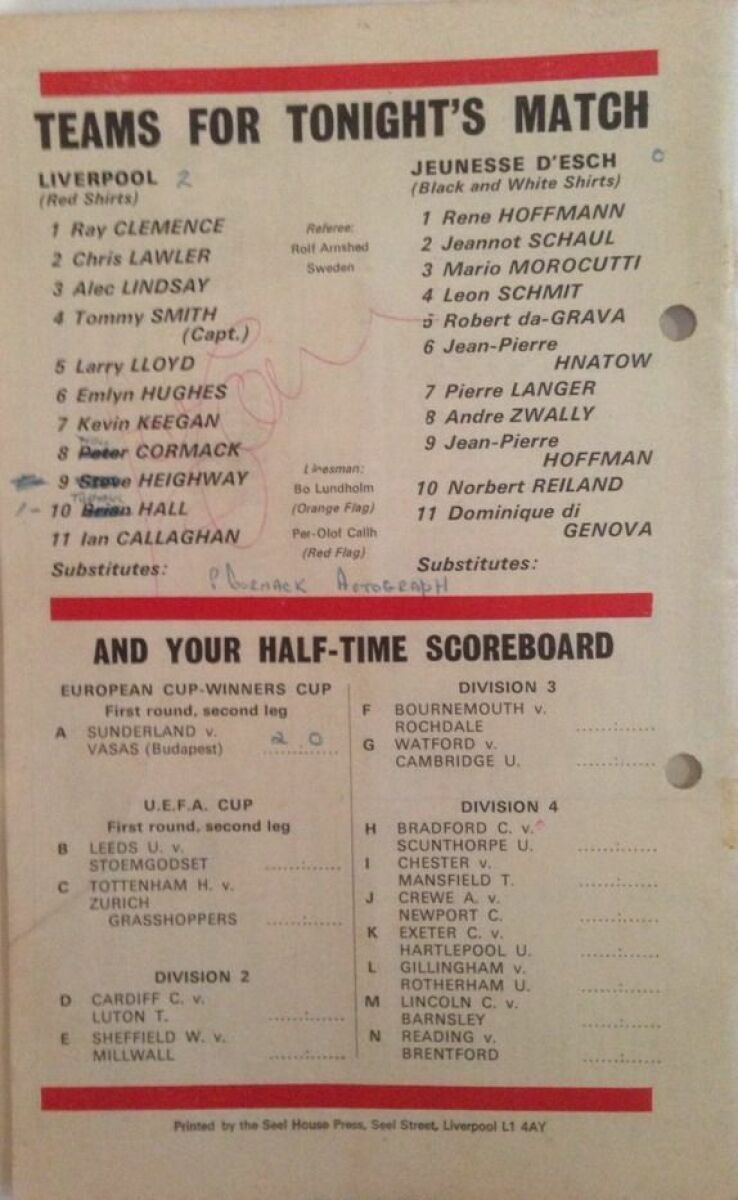 TEAMS FOR TONIGHT'S MATCH
LIVERPOOL 2
(Red Shirts)
1 Ray CLEMENCE
2 Chris LAWLER
3 Alec LINDSAY
4 Tommy SMITH
(Capt.)
5 Larry LLOYD
6 Emlyn HUGHES
7 Kevin KEEGAN
8 Peter CORMACK
9 Steve HEIGHWAY
10 Brian HALL
11 Ian CALLAGHAN
Substitutes:
P CORMACK AUTOGRAPH
Referee:
Rolf Arnshed
Sweden
Linesman:
Bo Lundholm
(Orange Flag)
Per-Olof Callh
(Red Flag)
JEUNESSE D'ESCH 0
(Black and White Shirts)
1 Rene HOFFMANN
2 Jeannot SCHAUL
3 Mario MOROCUTTI
4 Leon SCHMIT
5 Robert da-GRAVA
6 Jean-Pierre
HNATOW
7 Pierre LANGER
8 Andre ZWALLY
9 Jean-Pierre
HOFFMAN
10 Norbert REILAND
11 Dominique di
GENOVA
Substitutes:
AND YOUR HALF-TIME SCOREBOARD
EUROPEAN CUP-WINNERS CUP
First round, second leg
A SUNDERLAND v.
VASAS (Budapest) 2 : 0
U.E.F.A. CUP
First round, second leg
B LEEDS U. v.
STOEMGODSET ........:........
C TOTTENHAM H. v.
ZURICH
GRASSHOPPERS ........:........
DIVISION 2
D CARDIFF C. v.
LUTON T. ........:........
E SHEFFIELD W. v.
MILLWALL ........:........
DIVISION 3
F BOURNEMOUTH v.
ROCHDALE ........:........
G WATFORD v.
CAMBRIDGE U. ........:........
DIVISION 4
H BRADFORD C. v.
SCUNTHORPE U. ........:........
I CHESTER v.
MANSFIELD T. ........:........
J CREWE A. v.
NEWPORT C. ........:........
K EXETER C. v.
HARTLEPOOL U. ........:........
L GILLINGHAM v.
ROTHERHAM U. ........:........
M LINCOLN C. v.
BARNSLEY ........:........
N READING v.
BRENTFORD ........:........
Printed by the Seel House Press, Seel Street, Liverpool L1 4AY